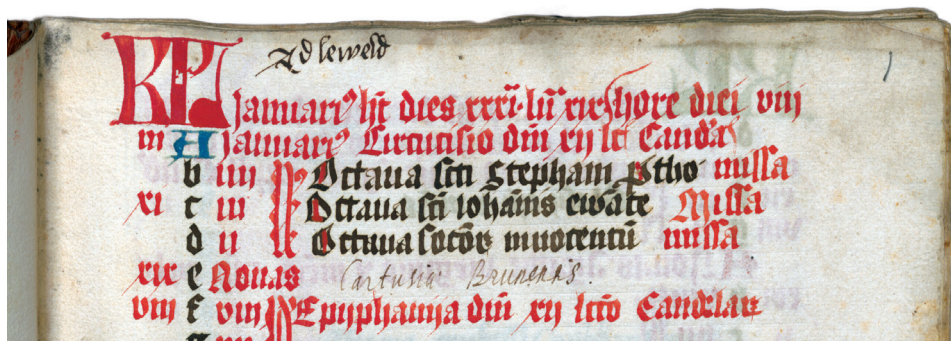 Ad leweld
1
KL Januari⁹ ht dies xxxi · lu xxx hore diei viii
iii A Januari⁹ Circūcisio dm̄ xii lcī Candel
b iiii N Octaua scī Stephani ptho missa
xi c iii N Octaua scī iohānis ewāte Missa
d ii N Octaua sctōr innocentū missa
xix e Nonas Cartusiae Brunensis
viii f viii Id Epyphanija dm̄ xii lccō Candelar
g vii